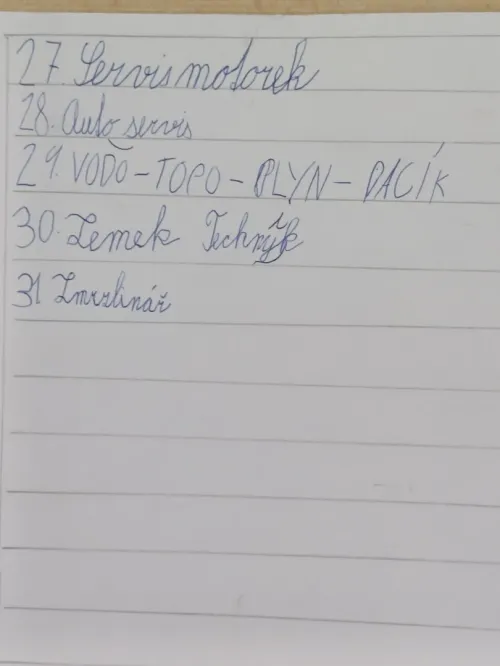 27. Servis motorek
28. Auto servis
29. VODO - TOPO - PLYN - PACÍK
30. Zemek Technyk
31 Zmrzlinář